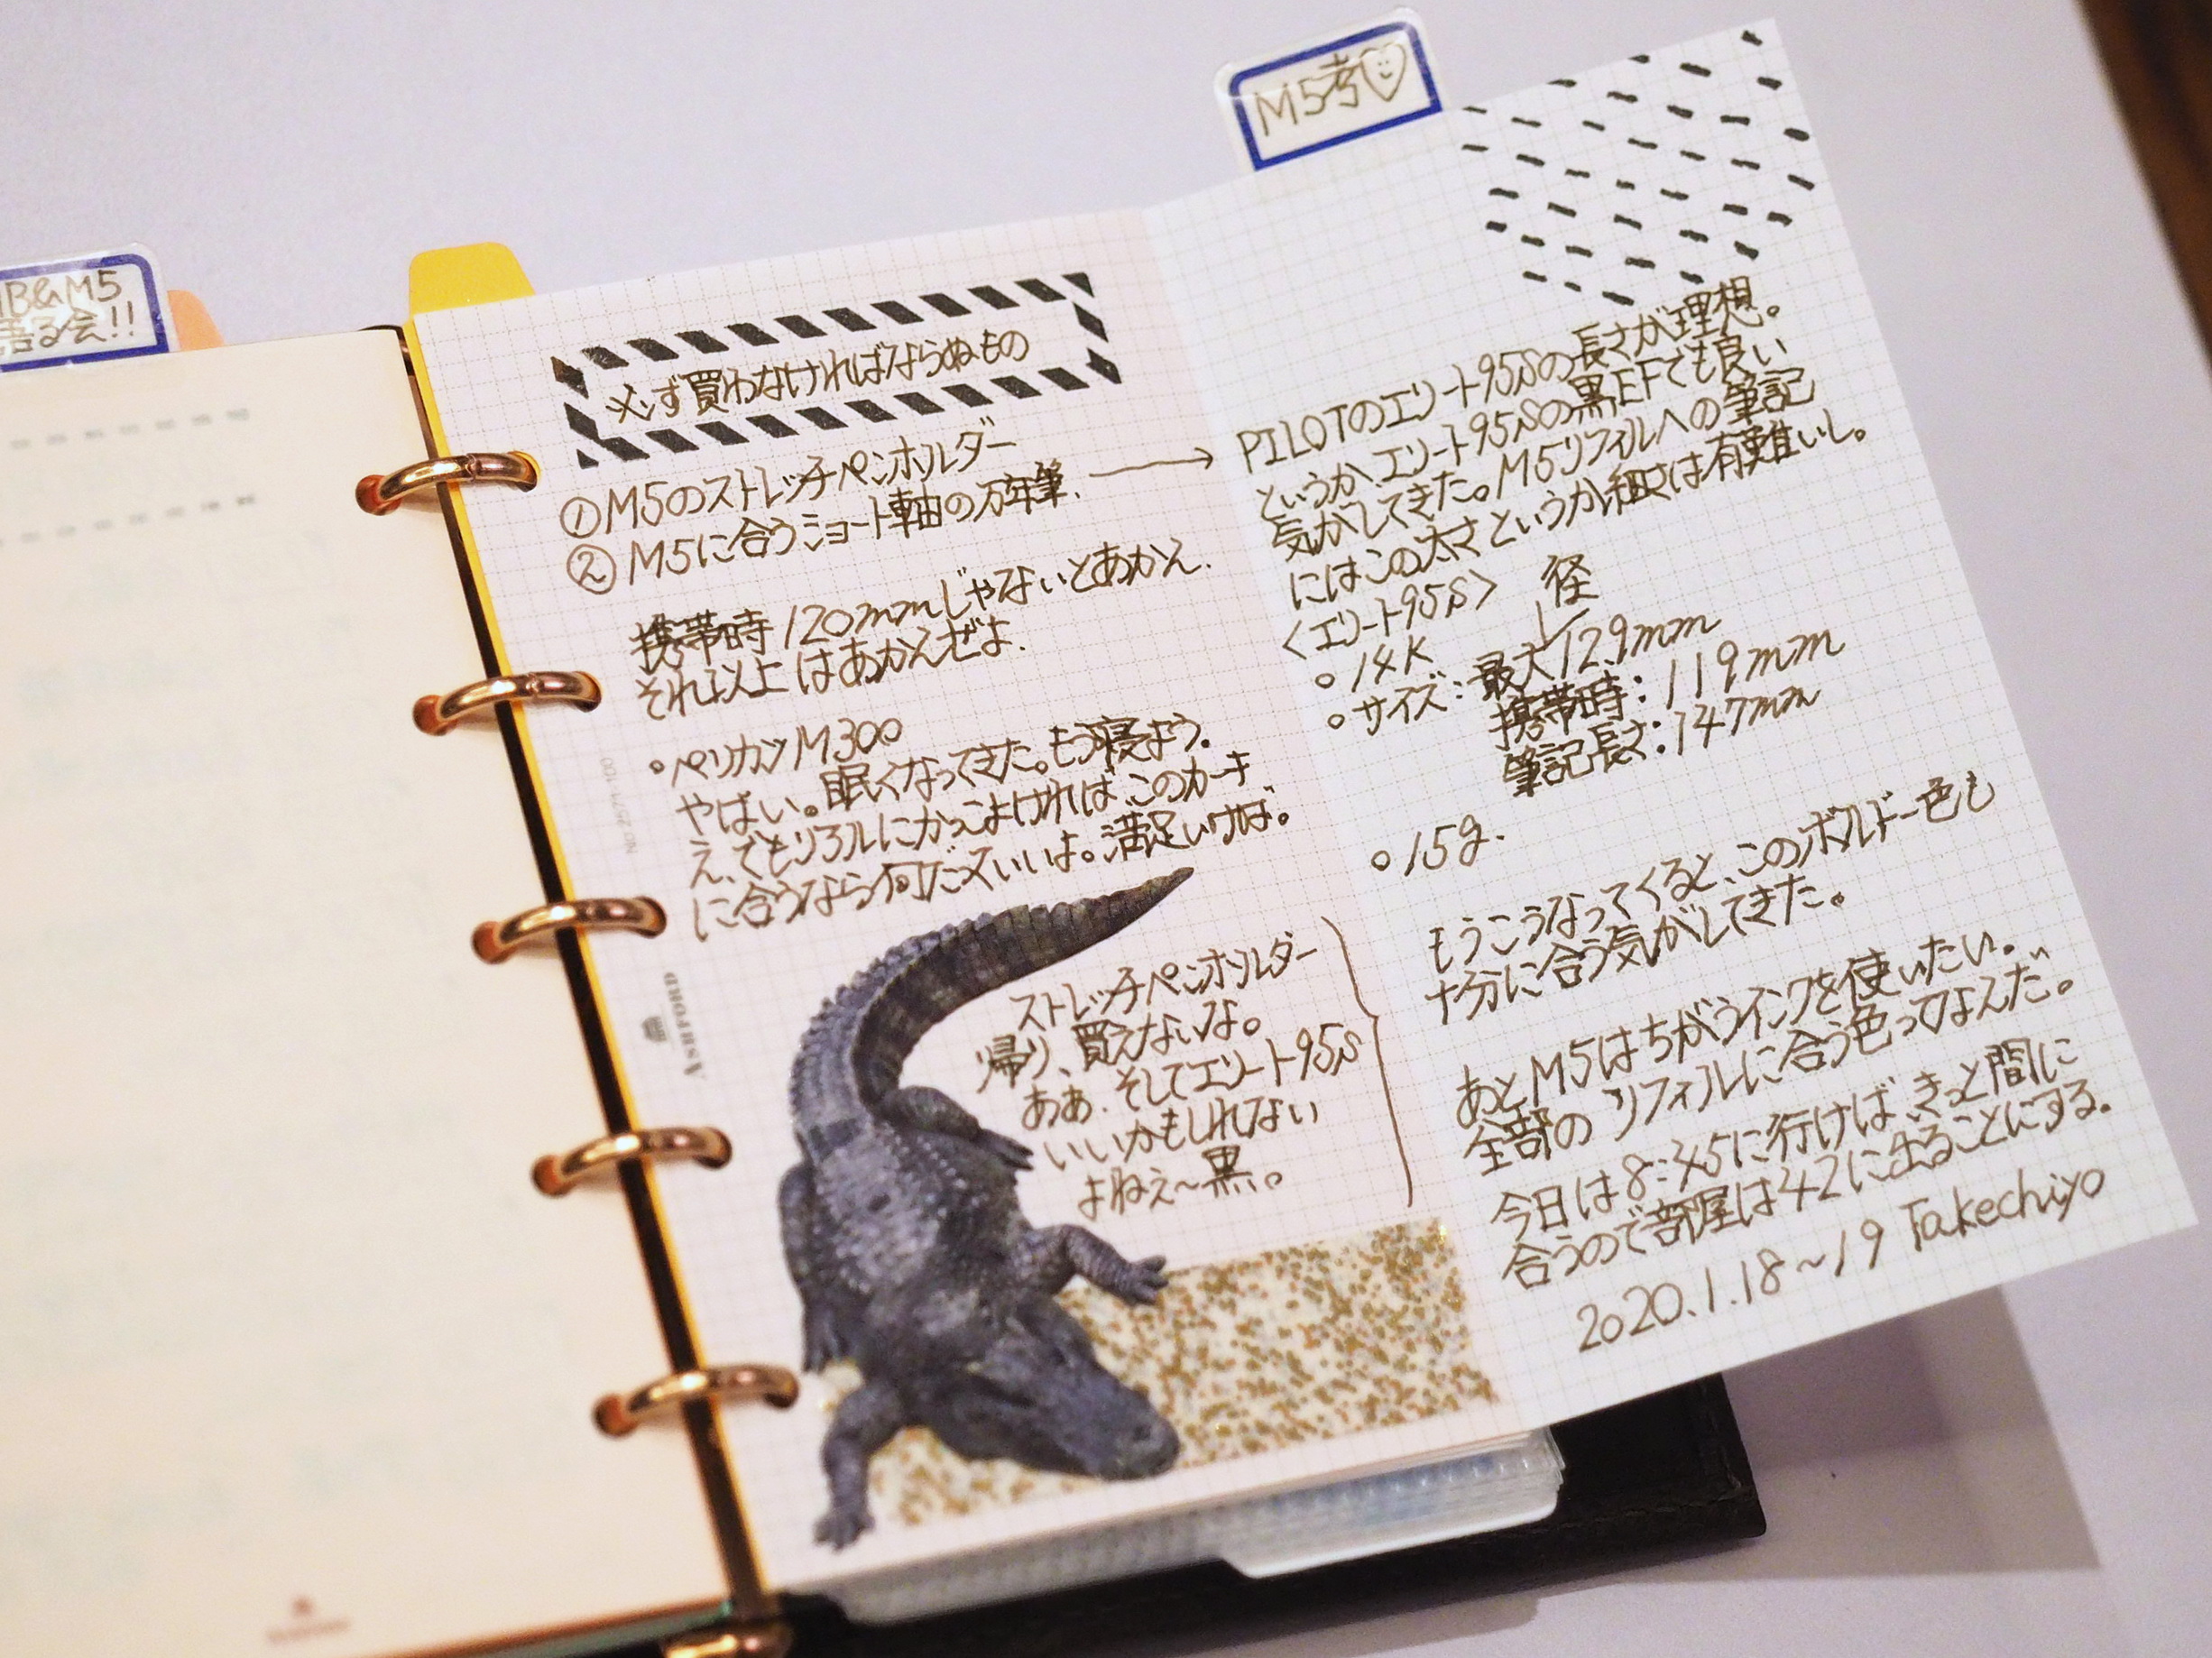 B&M5
語る会!!
M5考♡
必ず買わなければならぬもの
①M5のストレッチペンホルダー
②M5に合うショート軸の万年筆. →
携帯時120mmじゃないとあかん.
それ以上はあかんぜよ.
○ペリカンM300
やばい。眠くなってきた。もう寝よう.
え、でもリフルにかっこよければ、このカーキ
に合うなら何だっていいよ。満足いけば。
ストレッチペンホルダー
帰り、買えないな。
ああ.そしてエリート95S
いいかもしれない
よねえ〜黒。
NO.5571-100
ASHFORD
PILOTのエリート95Sの長さが理想。
というかエリート95Sの黒EFでも良い
気がしてきた。M5リフィルへの筆記
にはこの太さというか細さは有難いし。
<エリート95S> 径
○14K
○サイズ:最大12.9mm
携帯時:119mm
筆記長さ:147mm
○15g.
もうこうなってくると、このボルドー色も
十分に合う気がしてきた。
あとM5はちがうインクを使いたい。
全部のリフィルに合う色ってなんだ。
今日は8:45に行けば、きっと間に
合うので部屋は42に出ることにする。
2020.1.18~19 Takechiyo